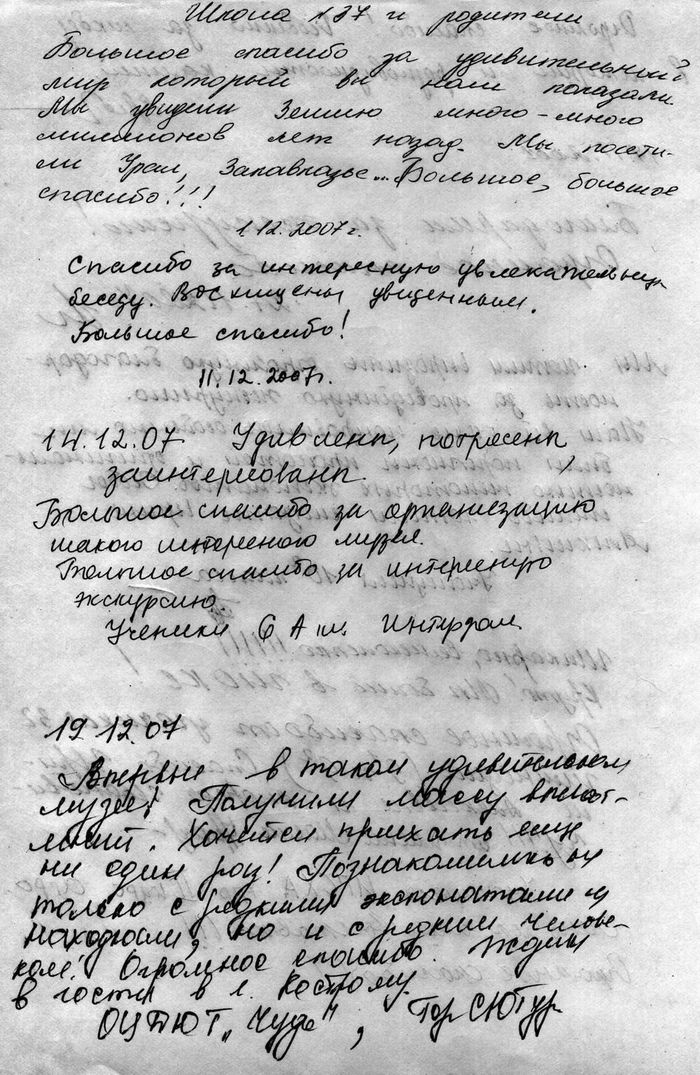 Школа №37 и родители
Большое спасибо за удивительный
мир который вы нам показали.
Мы увидели Землю много-много
миллионов лет назад. Мы посети-
ли Урал, Закавказье... Большое, большое
спасибо!!!
1.12.2007г.
Спасибо за интересную увлекательную
беседу. Восхищены увиденным.
Большое спасибо!
11.12.2007г.
14.12.07 Удивлены, потресены
заинтересованы.
Большое спасибо за организацию
такого интересного музея.
Большое спасибо за интересную
экскурсию.
Ученики 6 А шк. Интердом
19.12.07
Впервые в таком удивительном
музее! Получили массу впечат-
лений. Хочется приехать еще
ни один раз! Познакомились не
только с редкими экспонатами и
находками, но и с редким челове-
ком! Огромное спасибо. Ждем
в гости в г. Кострому.
ОЦДЮТ „Чудь", ГорСЮТур